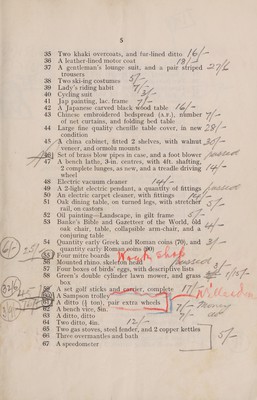 5
35 Two khaki overcoats, and fur-lined ditto 16/-
36 A leather-lined motor coat 19/-
37 A gentleman's lounge suit, and a pair striped 27/6
trousers
38 Two ski-ing costumes 5/-
39 Lady's riding habit
40 Cycling suit
41 Jap painting, lac. frame 7/-
42 A Japanese carved black wood table 16/-
43 Chinese embroidered bedspread (A.F.), number 7/-
of net curtains, and folding bed table
44 Large fine quality chenille table cover, in new 29/-
condition
45 A china cabinet, fitted 2 shelves, with walnut 30/-
veneer, and ormolu mounts
46 Set of brass blow pipes in case, and a foot blower passed
47 A bench lathe, 3-in. centres, with fit shafting,
2 complete lunges, as new, and a treadle driving
wheel
48 Electric vacuum cleaner 14/-
49 A 2-light electric pendant, a quantity of fittings passed
50 An electric carpet cleaner, with fittings
51 Oak dining table, on turned legs, with stretcher
rail, on castors
52 Oil painting—Landscape, in gilt frame 5/-
53 Banke's Bible and Gazetteer of the World, old
oak chair, table, collapsible arm-chair, and a 4/-
conjuring table
54 Quantity early Greek and Roman coins (70), and 3/-
quantity early Roman coins (90)
55 Four mitre boards Work Shop
56 Mounted rhino. skeleton head passed
57 Four boxes of birds' eggs, with descriptive lists
58 Green's double cylinder lawn mower, and grass
box
59 A set golf sticks and carrier, complete 17/-
60 A Sampson trolley
61 A ditto (½ ton), pair extra wheels
62 A bench vice, 8in.
63 A ditto, ditto
64 Two ditto, 4in. 12/-
65 Two gas stoves, steel fender, and 2 copper kettles
66 Three overmantles and bath 5/-
67 A speedometer